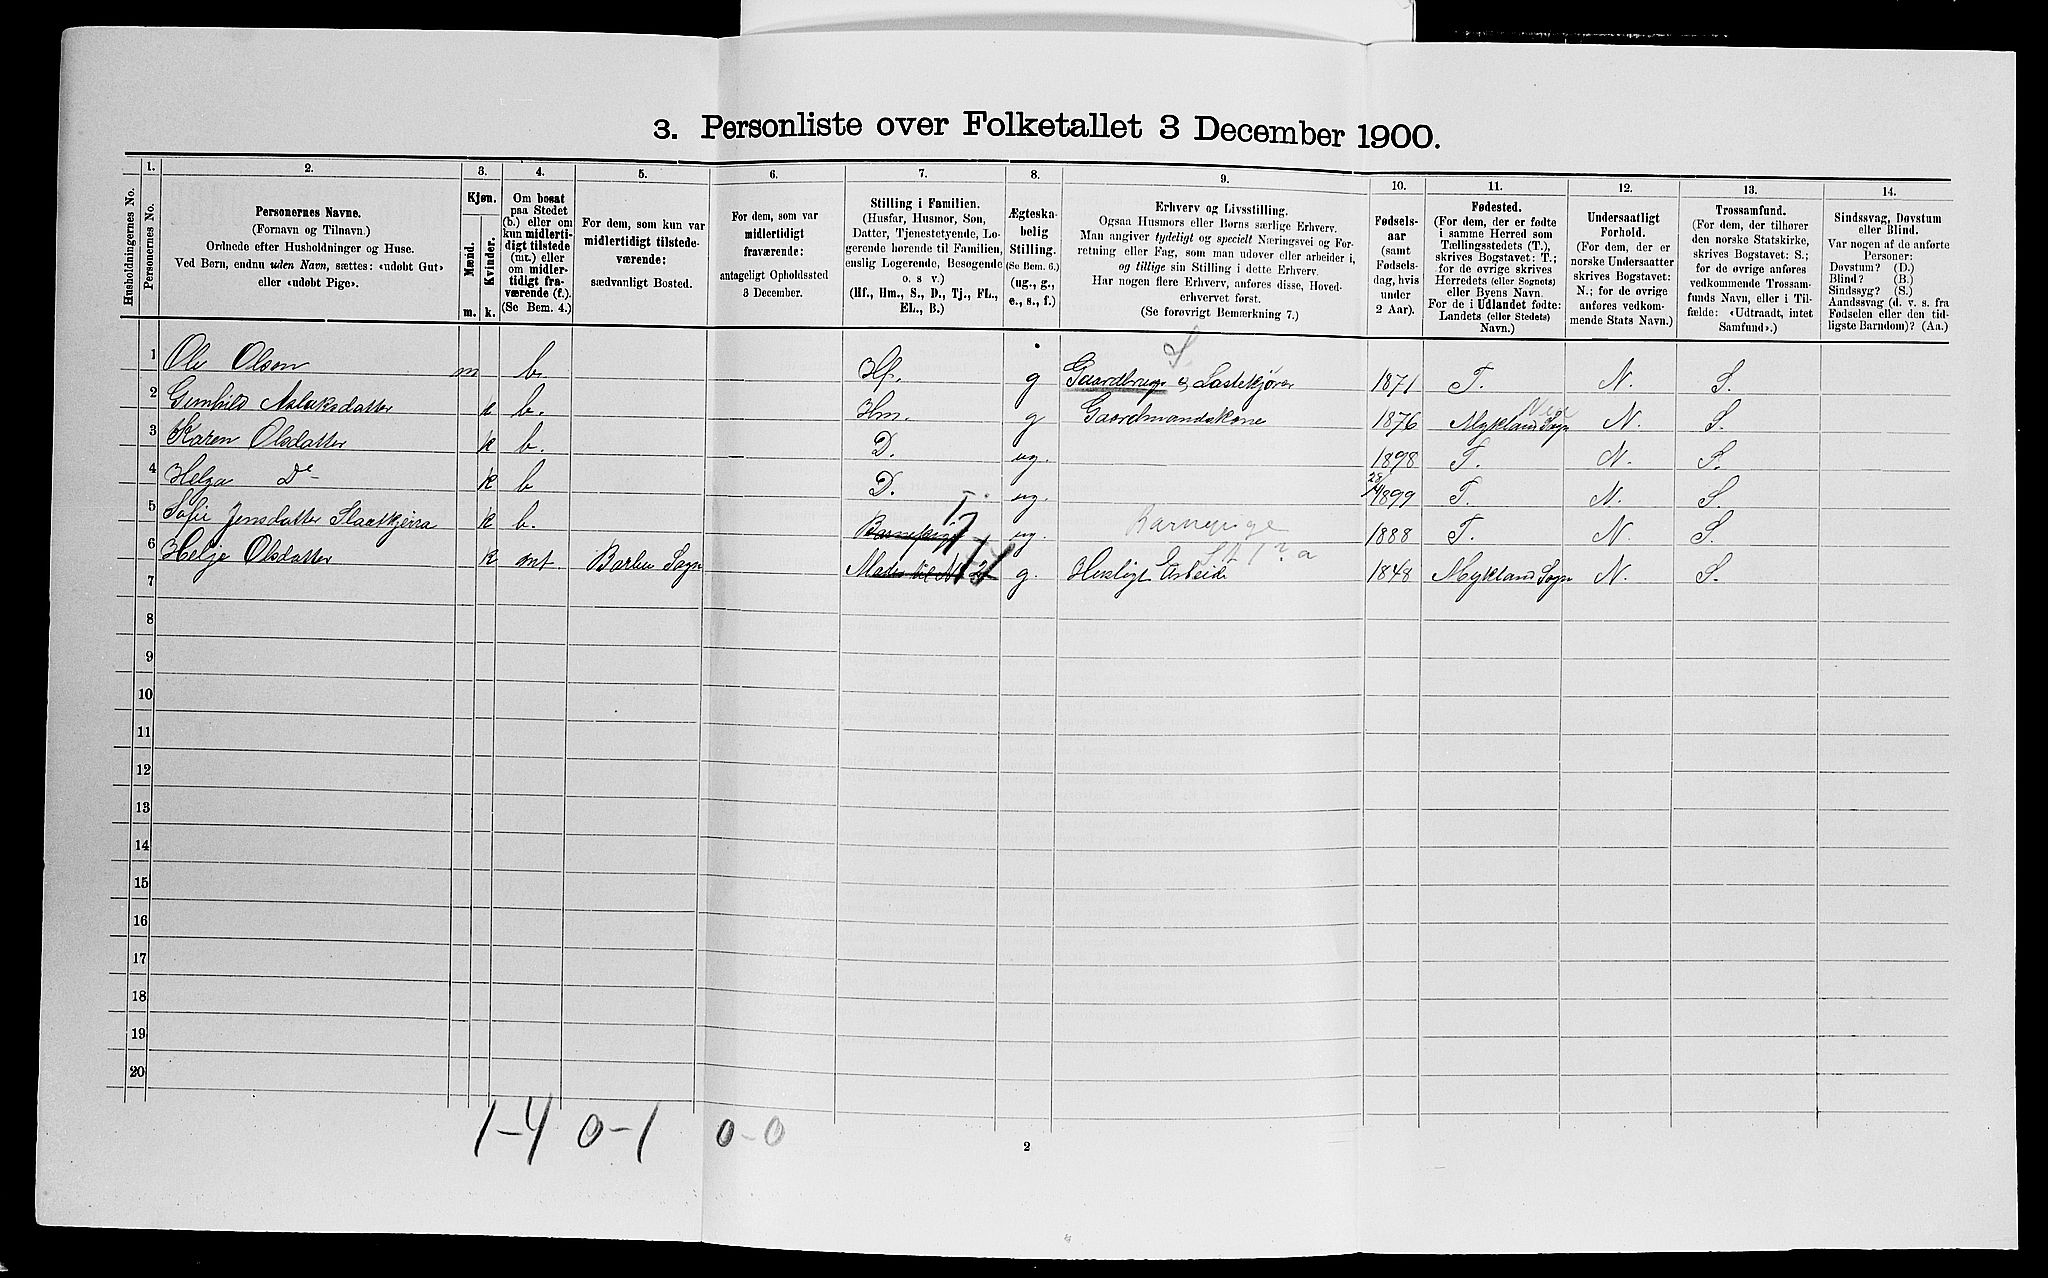 3. Personliste over Folketallet 3 December 1900.
Husholdningernes No.
1.
Personernes No.
2.
Personernes Navne.
(Fornavn og Tilnavn.)
Ordnede efter Husholdninger og Huse.
Ved Børn, endnu uden Navn, sættes: «udøbt Gut»
eller «udøbt Pige».
3.
Kjøn.
Mænd.
Kvinder.
m.
k.
4.
Om bosat
paa Stedet
(b.) eller om
kun midlerti-
digt tilstede
(mt.) eller
om midler-
tidigt fra-
værende (f.).
(Se Bem. 4.)
5.
For dem, som kun var
midlertidigt tilstede-
værende:
sædvanligt Bosted.
6.
For dem, som var
midlertidigt
fraværende:
antageligt Opholdssted
3 December.
7.
Stilling i Familien.
(Husfar, Husmor, Søn,
Datter, Tjenestetyende, Lo-
gerende hørende til Familien,
enslig Logerende, Besøgende
o. s v.)
(Hf., Hm., S., D., Tj., FL.,
EL., B.)
8.
Ægteska-
belig
Stilling.
(Se Bem. 6.)
(ug., g.,
e., s., f.)
9.
Erhverv og Livsstilling.
Ogsaa Husmors eller Børns særlige Erhverv.
Man angiver tydeligt og specielt Næringsvei og For-
retning eller Fag, som man udøver eller arbeider i,
og tillige sin Stilling i dette Erhverv.
Har nogen flere Erhverv, anføres disse, Hoved-
erhvervet først.
(Se forøvrigt Bemærkning 7.)
10.
Fødsels-
aar
(samt
Fødsels-
dag, hvis
under
2 Aar).
11.
Fødested.
(For dem, der er fødte
i samme Herred som
Tællingsstedets (T.),
skrives Bogstavet: T.;
for de øvrige skrives
Herredets (eller Sognets)
eller Byens Navn.
For de i Udlandet fødte:
Landets (eller Stedets)
Navn.)
12.
Undersaatligt
Forhold.
(For dem, der er
norske Undersaatter
skrives Bogstavet:
N.; for de øvrige
anføres vedkom-
mende Stats Navn.)
13.
Trossamfund.
(For dem, der tilhører
den norske Statskirke,
skrives Bogstavet: S.;
for de øvrige anføres
vedkommende Trossam-
funds Navn, eller i Til-
fælde: «Udtraadt, intet
Samfund».)
14.
Sindssvag, Døvstum
eller Blind.
Var nogen af de anførte
Personer:
Døvstum? (D.)
Blind? (B.)
Sindssyg? (S.)
Aandssvag (d. v. s. fra
Fødselen eller den tid-
ligste Barndom)? (Aa.)
1 Ole Olsen m b. Hf. g Gaardbruger & Lastekjører 1871 T. N. S.
2 Gunhild Aslaksdatter k b. Hm. g Gaardmandskone 1876 Mykland Sogn N. S.
3 Karen Olsdatter k b. D. ug. 1898 T. N. S.
4 Helga Do k b D. ug. 1899 T. N. S.
5 Sofie Jensdatter Slaatkjerra k b. Barnepige T. ug. Barnepige 1888 T. N. S.
6 Helje Olsdatter k mt. Barbu Sogn Moder til No 2 g. Husligt Arbeide 1848 Mykland Sogn N. S.
7
8
9
10
11
12
13
14
15
16
17
18
19
20
1-4 0-1 0-0
2